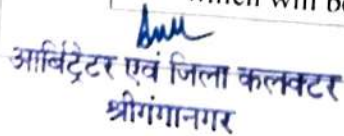 which will b
आर्बिट्रेटर एवं जिला कलक्टर
श्रीगंगानगर